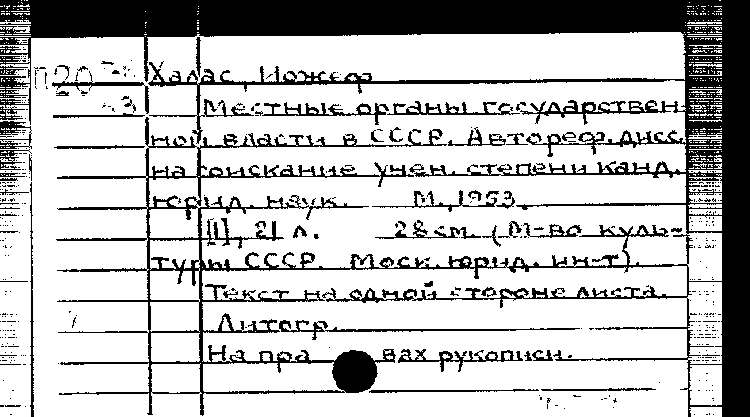 П20 Халас, Иожеф
Местные органы государствен-
ной власти в СССР. Автореф. дисс.
на соискание учен. степени канд.
юрид. наук. М., 1953.
[1], 21 л. 28 см. (М-во куль-
туры СССР. Моск. юрид. ин-т).
Текст на одной стороне листа.
Литогр.
На правах рукописи.